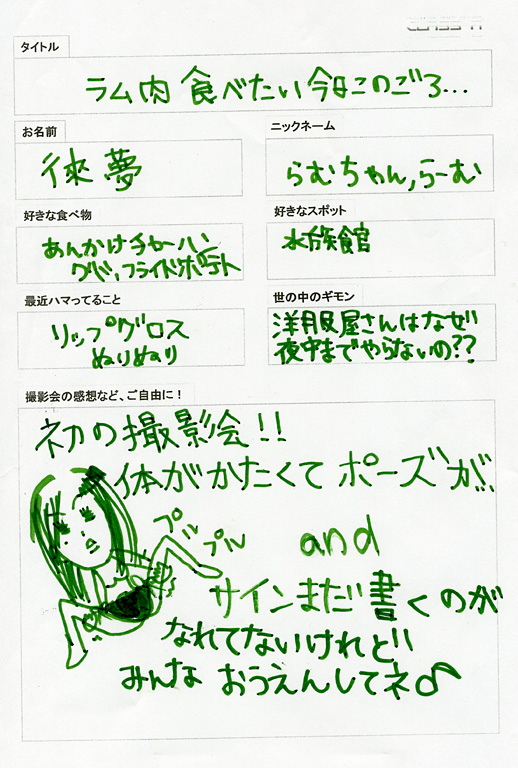 タイトル
ラム肉 食べたい 今日このごろ...
お名前
徠夢
ニックネーム
らむちゃん,らーむ
好きな食べ物
あんかけチャーハン
グミ,フライドポテト
好きなスポット
水族館
最近ハマってること
リップグロス
ぬりぬり
世の中のギモン
洋服屋さんはなぜ
夜中までやらないの??
撮影会の感想など、ご自由に!
初の撮影会!!
体がかたくて ポーズが!!
プル
プル
and
サインまだ書くのが
なれてないけれど!!
みんな おうえんしてネ